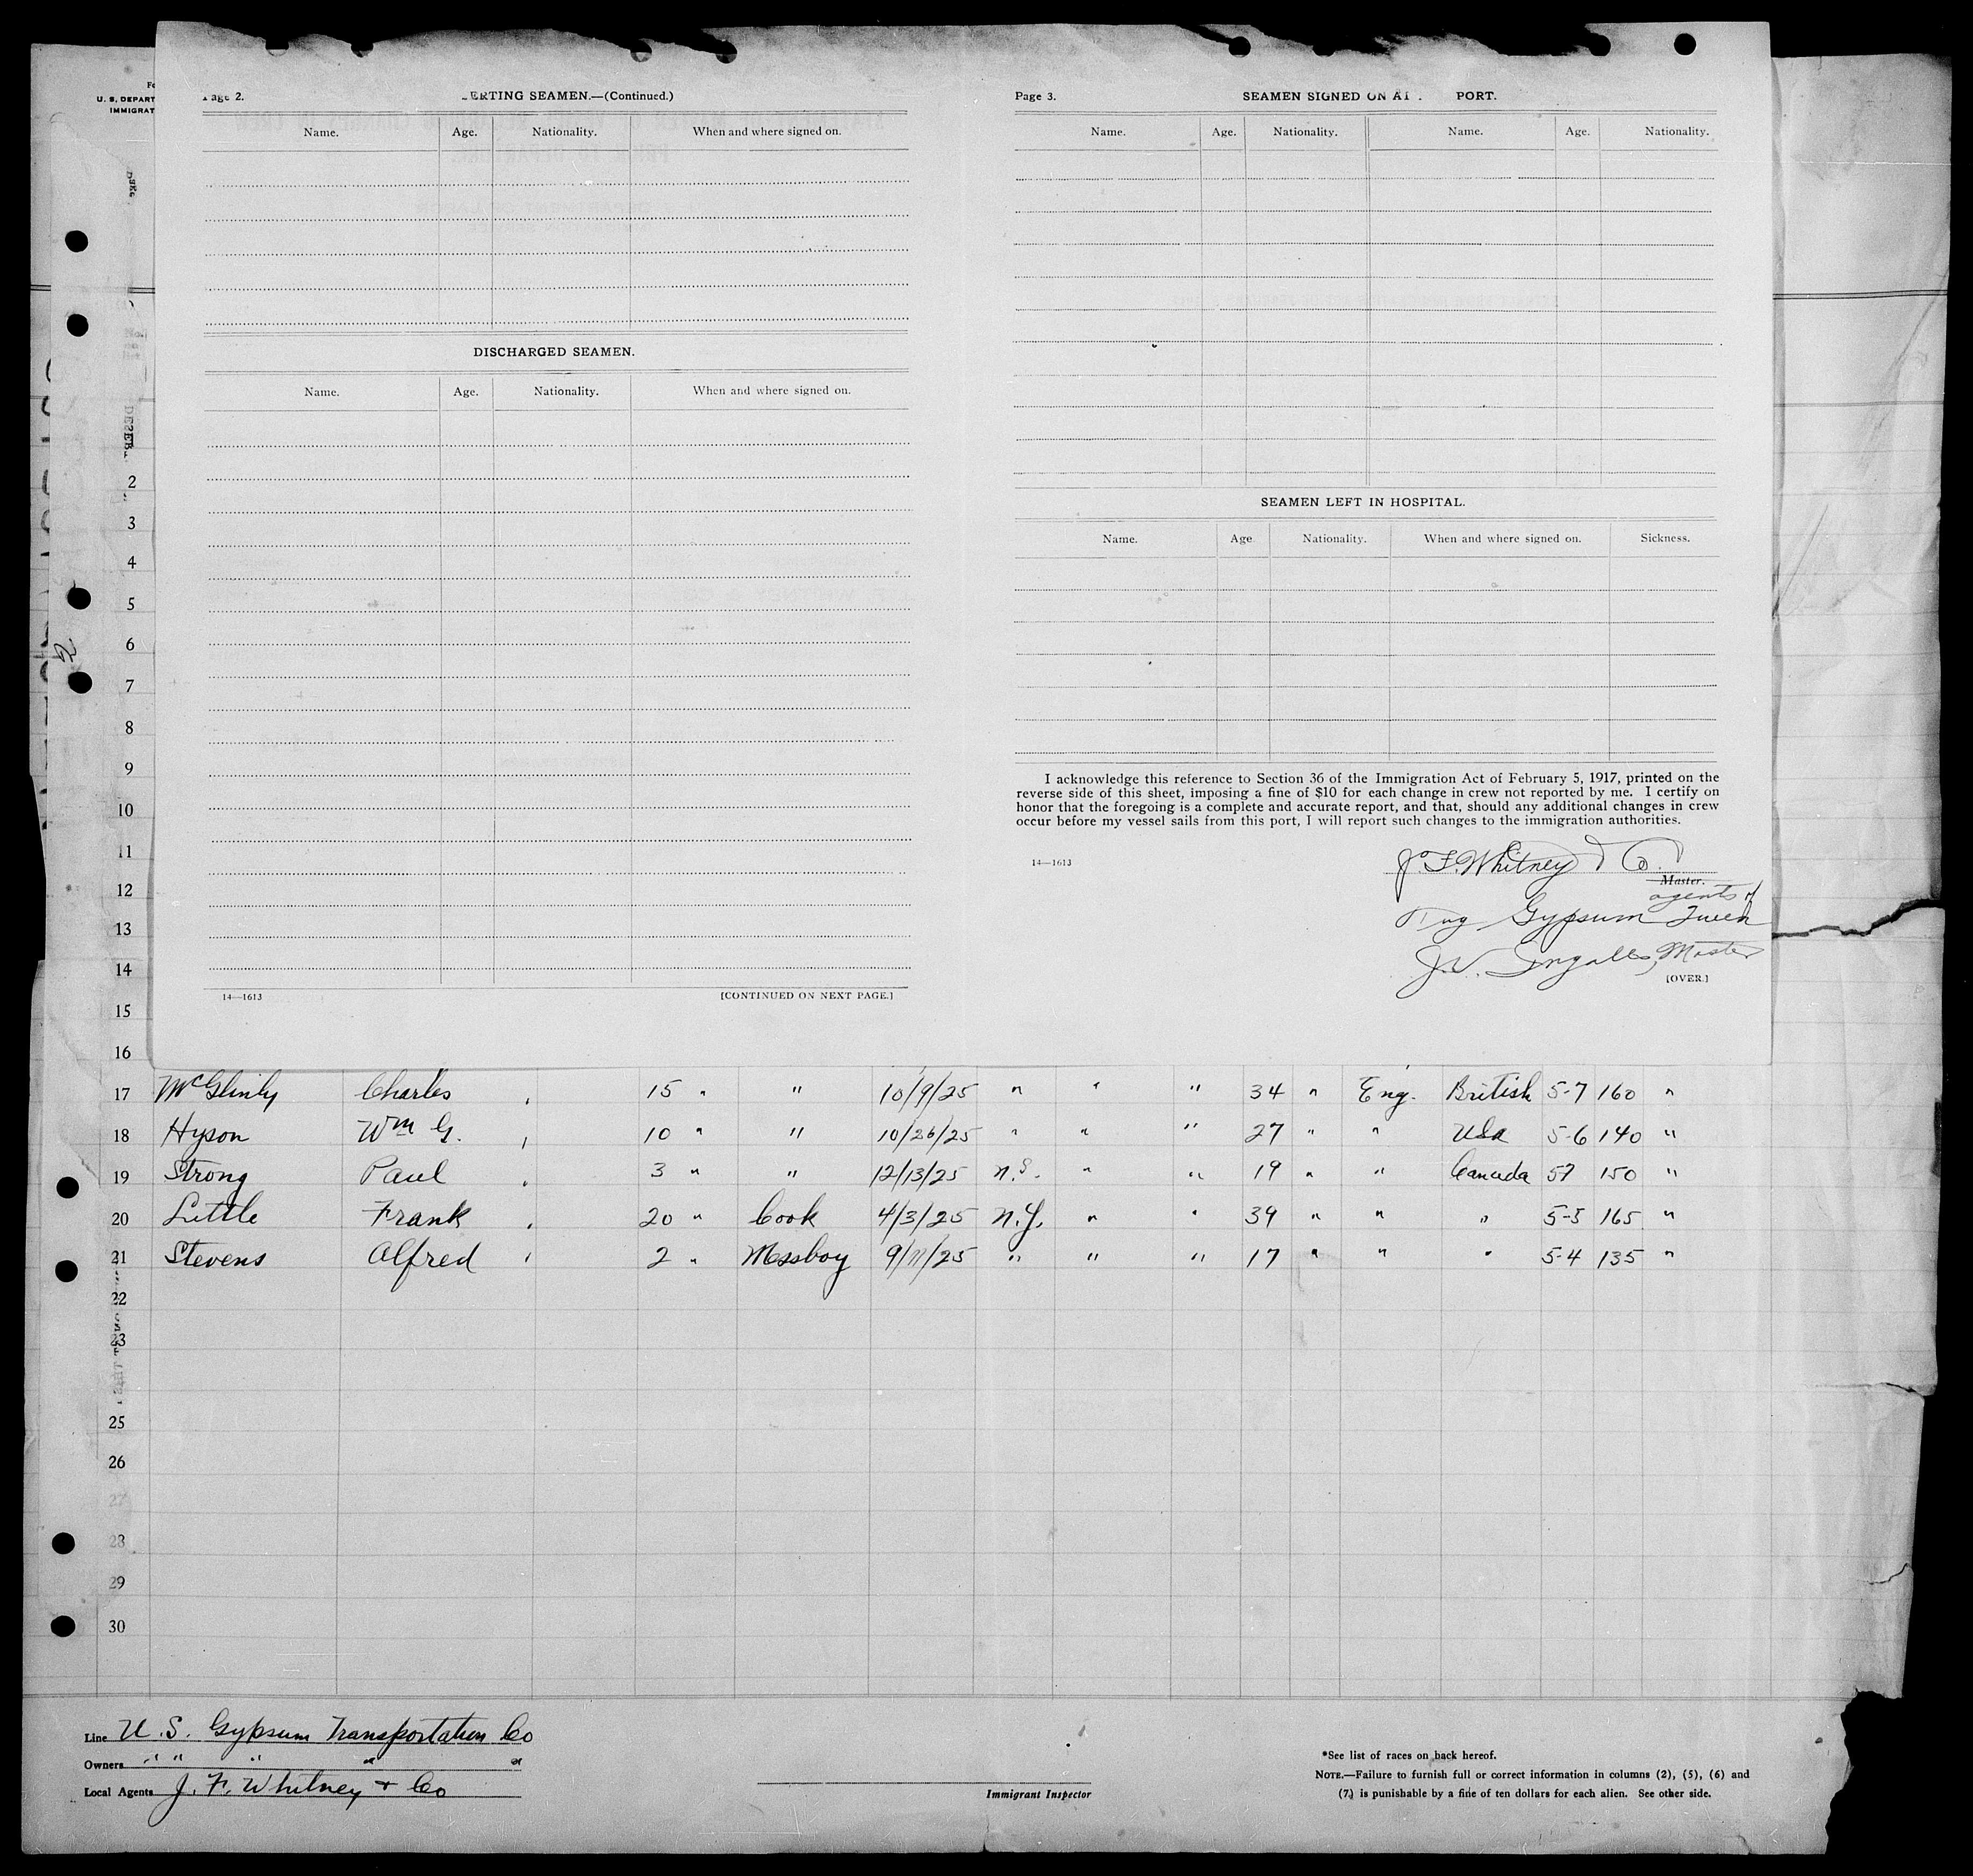 U. S. DEPART
IMMIGRAT
Page 2.
ERTING SEAMEN.—(Continued.)
Name. Age. Nationality. When and where signed on.
DISCHARGED SEAMEN.
Name. Age. Nationality. When and where signed on.
14—1613
[CONTINUED ON NEXT PAGE.]
Page 3.
SEAMEN SIGNED ON AT PORT.
Name. Age. Nationality. Name. Age. Nationality.
SEAMEN LEFT IN HOSPITAL.
Name. Age. Nationality. When and where signed on. Sickness.
I acknowledge this reference to Section 36 of the Immigration Act of February 5, 1917, printed on the
reverse side of this sheet, imposing a fine of $10 for each change in crew not reported by me. I certify on
honor that the foregoing is a complete and accurate report, and that, should any additional changes in crew
occur before my vessel sails from this port, I will report such changes to the immigration authorities.
14—1613
J. F. Whitney & Co.
Master.
agents of
Tug Gypsum Queen
J.V. Ingalls, Master
[OVER.]
2
3
4
5
6
7
8
9
10
11
12
13
14
15
16
17 Charles 15 " " 10/9/25 " " " 34 " Eng. British 5-7 160 "
18 Hyson Wm G. 10 " " 10/26/25 " " " 27 " " USA 5-6 140 "
19 Strong Paul 3 " " 12/13/25 N.S. " " 19 " " Canada 57 150 "
20 Little Frank 20 " Cook 4/3/25 N.Y. " " 39 " " " 5-5 165 "
21 Stevens Alfred 2 " Messboy 9/11/25 " " " 17 " " " 5-4 135 "
22
23
25
26
27
28
29
30
Line U.S. Gypsum Transportation Co
Owners " " " " "
Local Agents J. F. Whitney + Co
Immigrant Inspector
*See list of races on back hereof.
NOTE.—Failure to furnish full or correct information in columns (2), (5), (6) and
(7) is punishable by a fine of ten dollars for each alien. See other side.